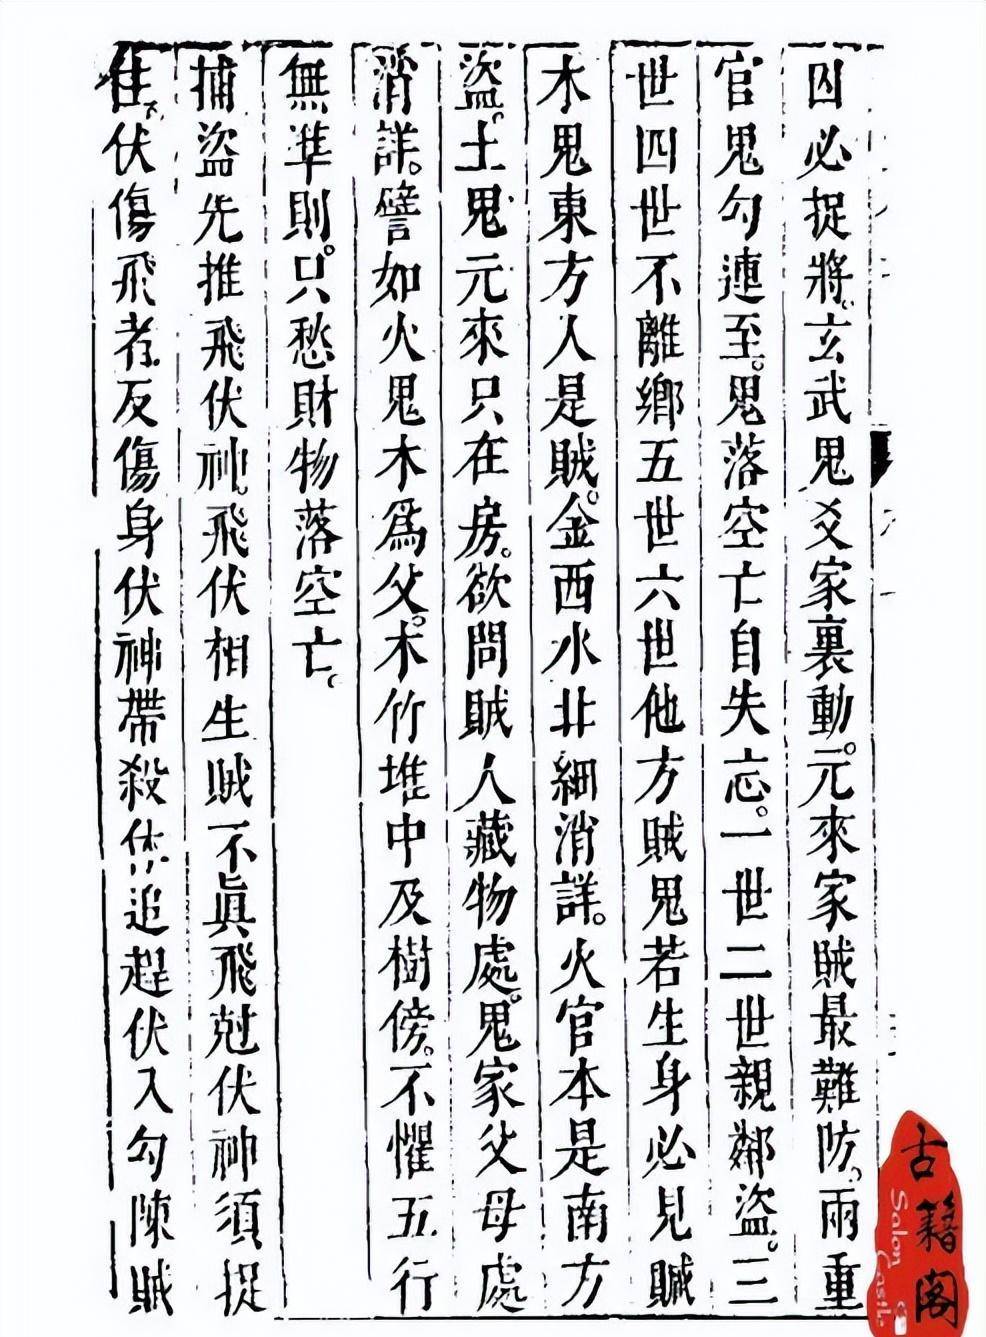 囚必捉將。玄武鬼爻家裏動。元來家賊最難防。兩重
官鬼勾連至。鬼落空亡自失忘。一世二世親鄰盜。三
世四世不離鄉五世六世他方賊鬼若生身必見贓
木鬼東方人是賊。金西水北細消詳。火官本是南方
盜。土鬼元來只在房。欲問賊人藏物處。鬼家父母處
消詳。譬如火鬼木爲父。木竹堆中及樹傍。不懼五行
無準則。只愁財物落空亡。
捕盜先推飛伏神。飛伏相生賊不眞飛尅伏神須捉
住。伏傷飛者反傷身伏神帶殺休追趕伏入勾陳賊
古籍閣
Salon Castle